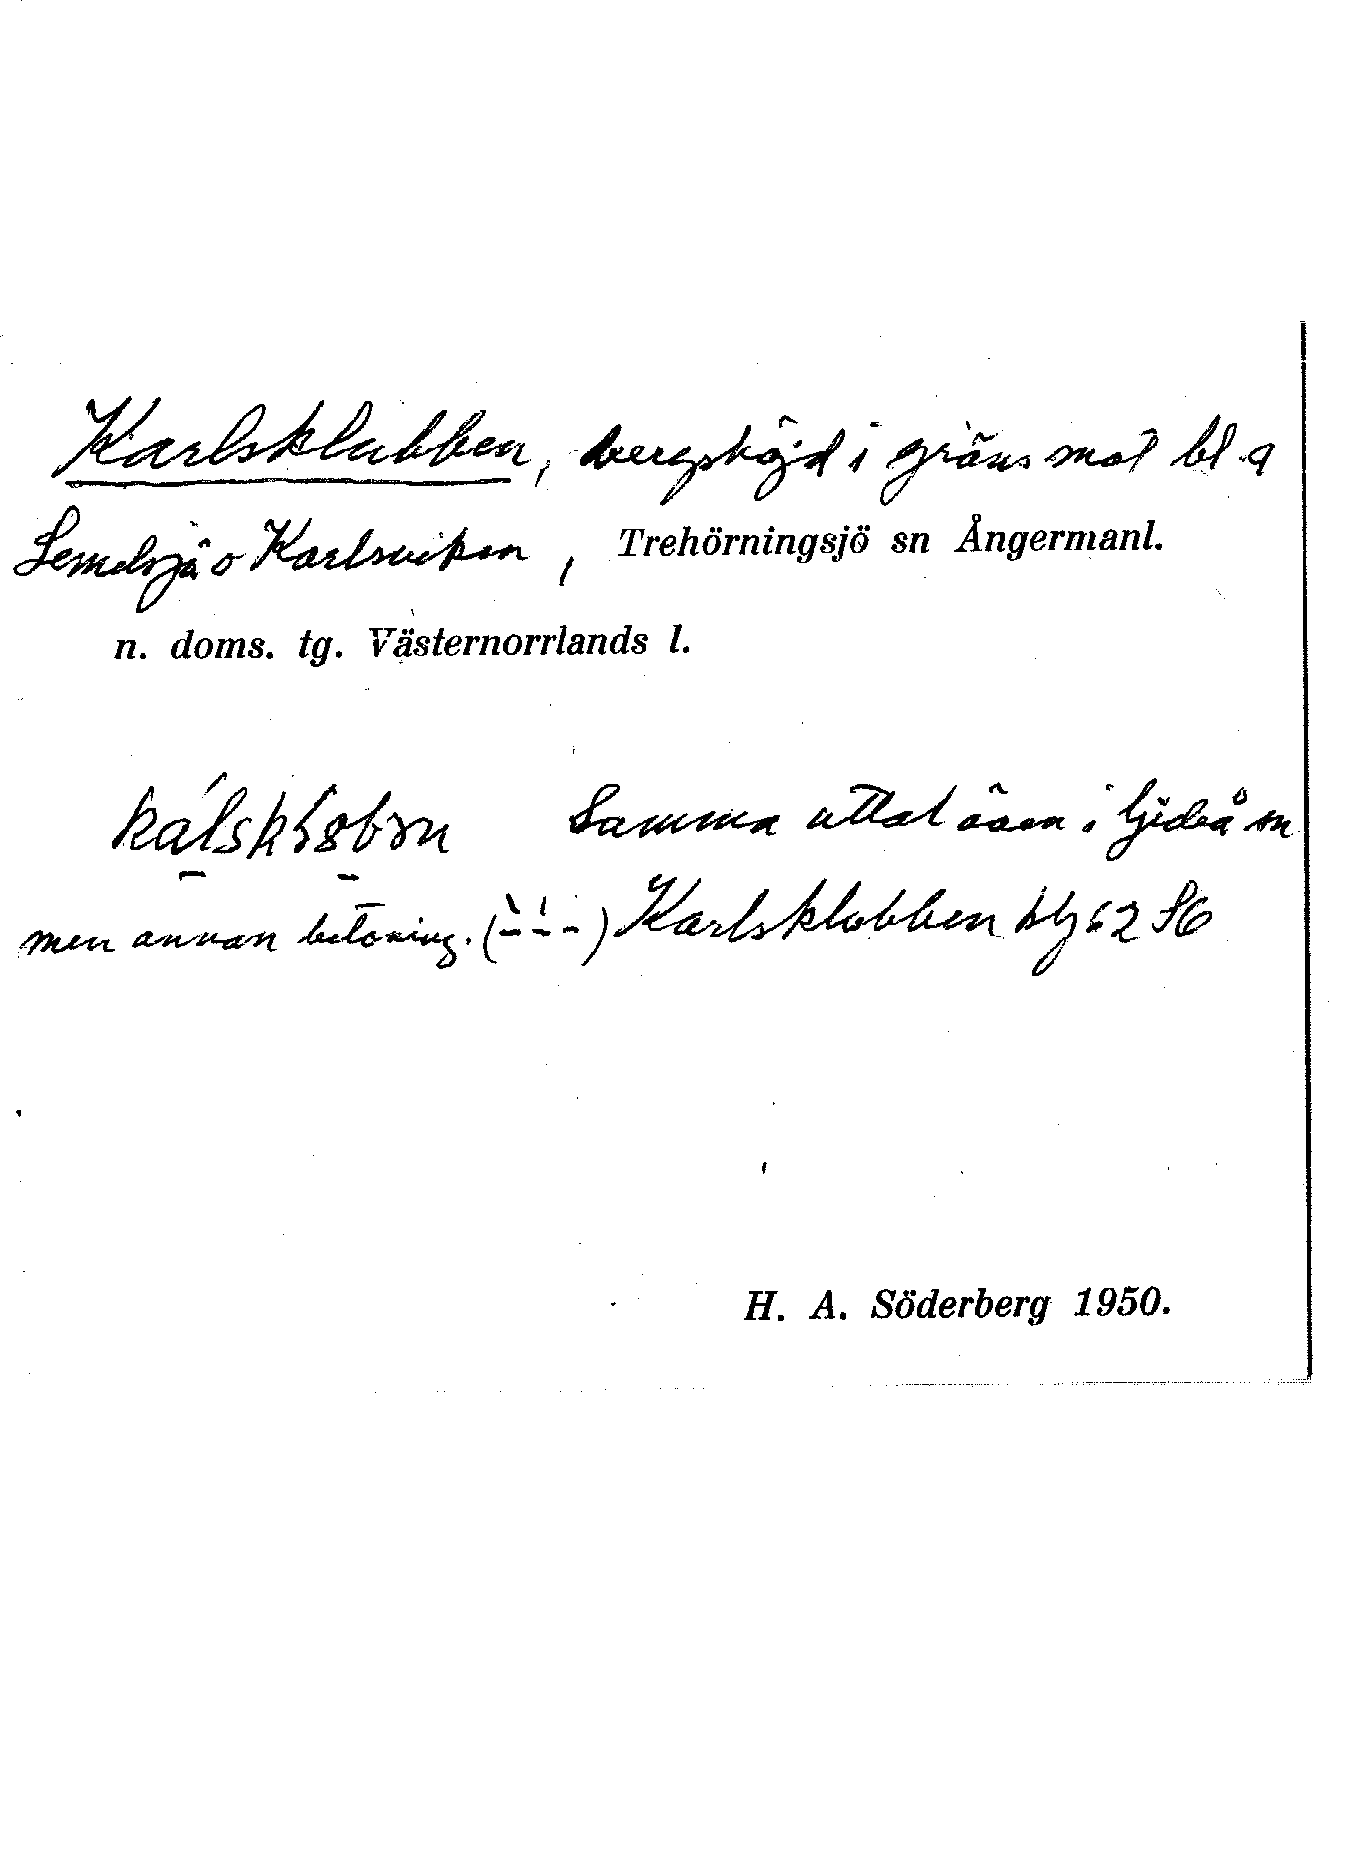 Karlsklubben, bergshöjd i gräns mot bl.a
Lemesjö o Karlsviken, Trehörningsjö sn Ångermanl.
n. doms. tg. Västernorrlands l.
Samma uttal även i Gideå sn
men annan betoning. (- - -) Karlsklobben blg 62 S6
H. A. Söderberg 1950.